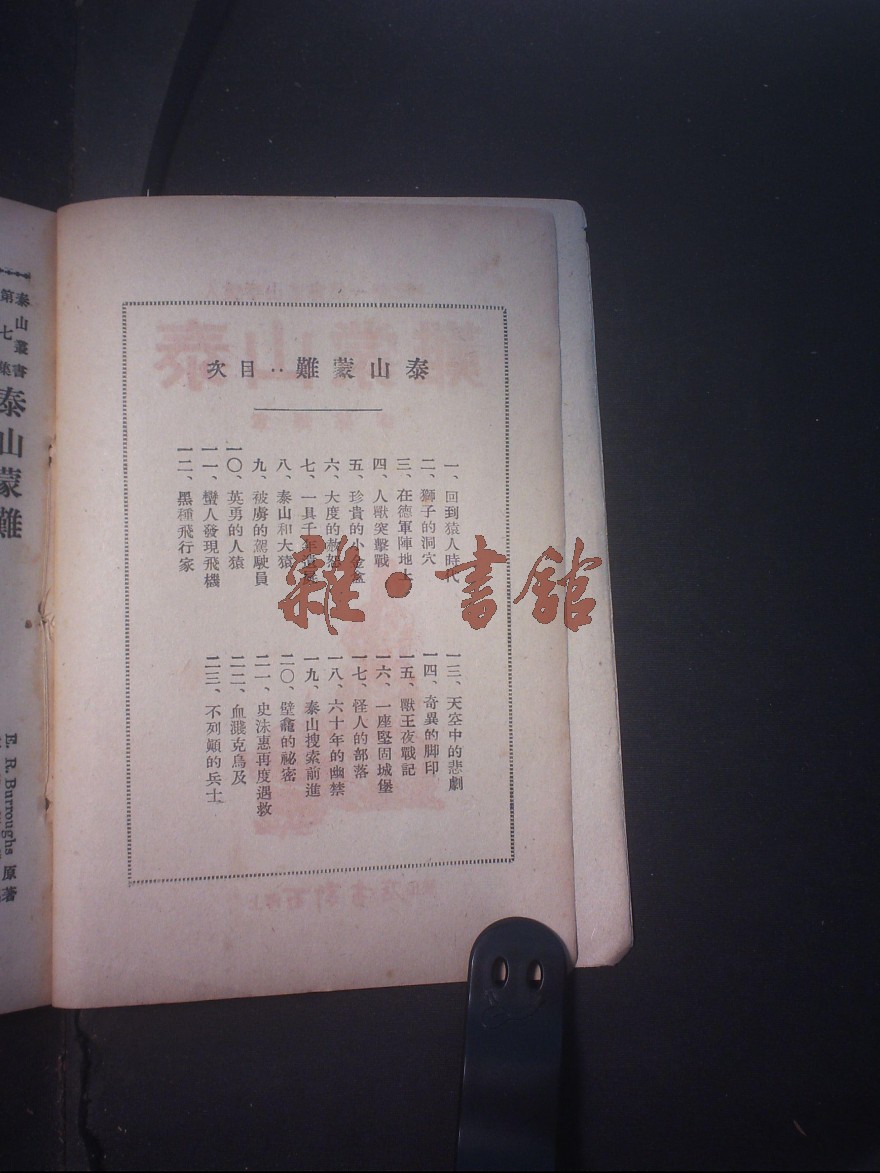 泰山蒙難‥目次
一、回到猿人時代
二、獅子的洞穴
三、在德軍陣地上
四、人獸突擊戰
五、珍貴的小金盒
六、大度的赦
七、一具千年遺
八、泰山和大猿
九、被虜的駕駛員
一〇、英勇的人猿
一一、蠻人發現飛機
一二、黑種飛行家
一三、天空中的悲劇
一四、奇異的脚印
一五、獸王夜戰記
一六、一座堅固城堡
一七、怪人的部落
一八、六十年的幽禁
一九、泰山搜索前進
二〇、壁龕的祕密
二一、史沫惠再度遇救
二二、血濺克烏及
二三、不列顛的兵士
泰山叢書
第七集
泰山蒙難
E. R. Burroughs 原著
雜·書館